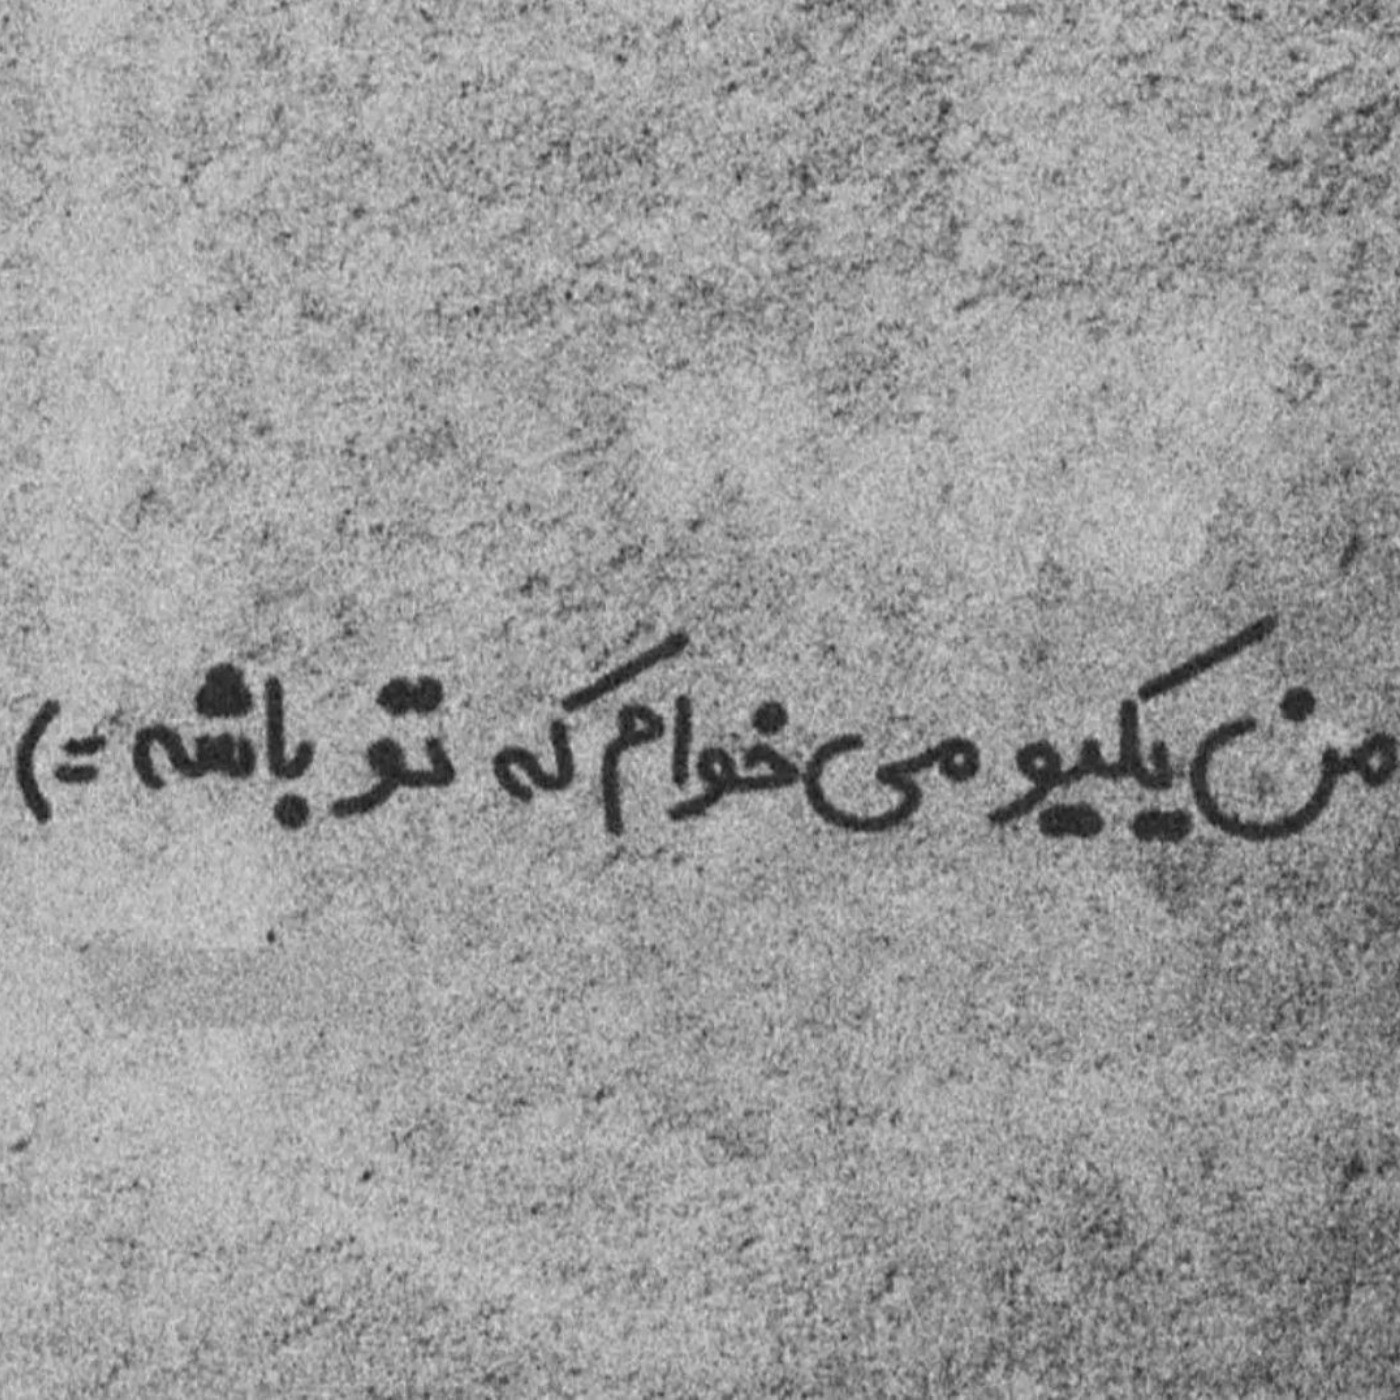 من یکیو می‌خوام که تو باشه =)